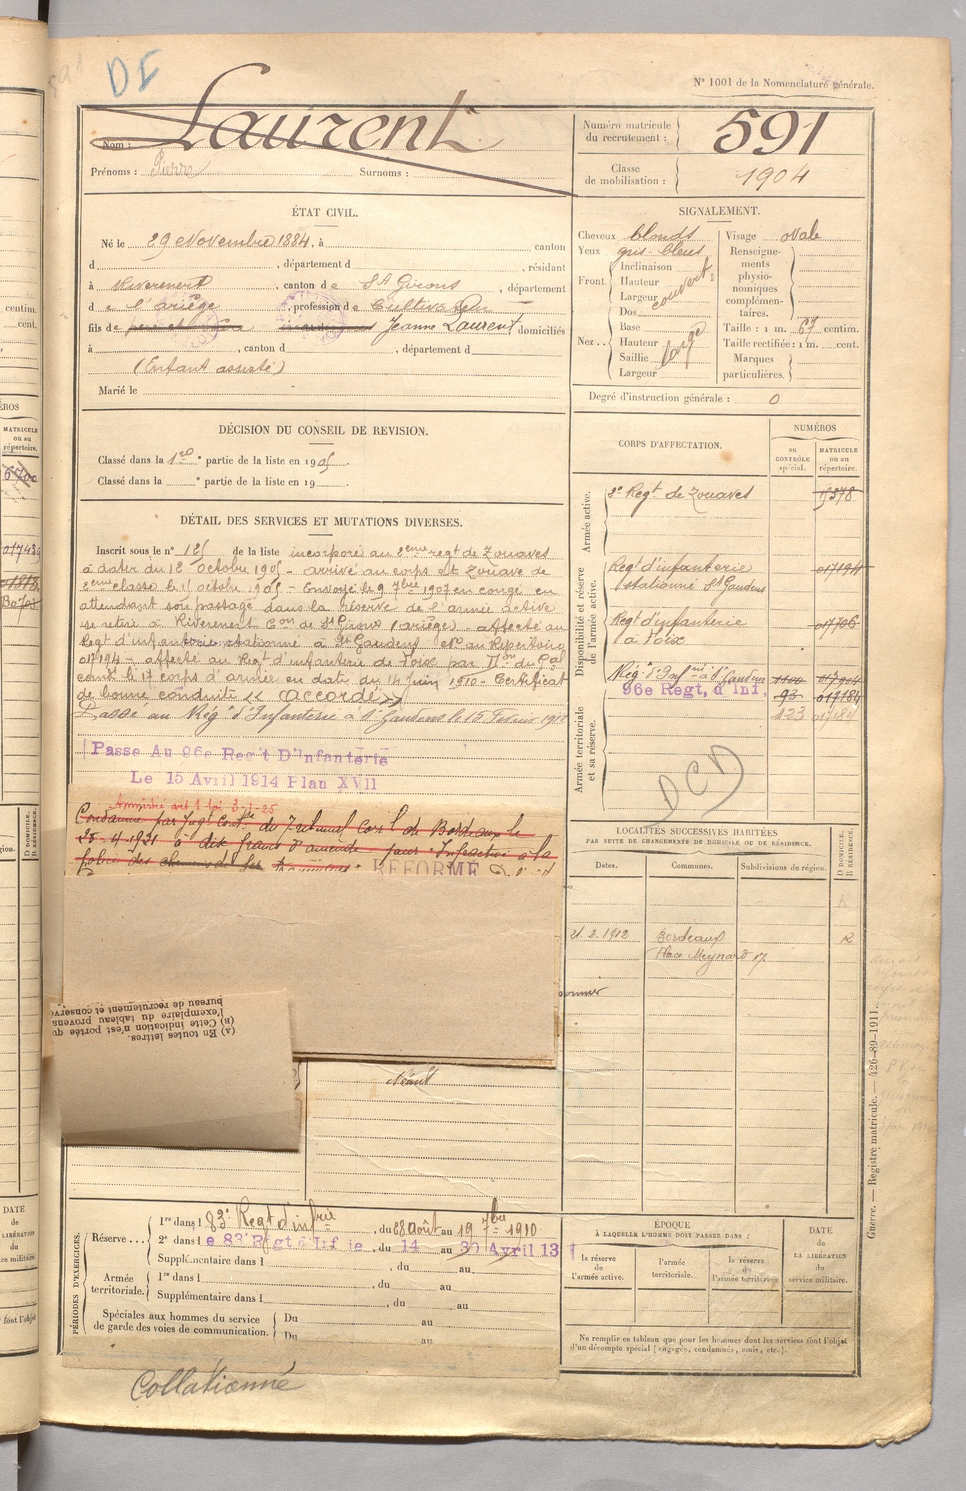 DF
N° 1001 de la Nomenclature générale.
Nom : Laurent
Prénoms : Pierre Surnoms :
Numéro matricule du recrutement : 591
Classe de mobilisation : 1904
ÉTAT CIVIL.
Né le 29 Novembre 1884, à canton
d , département d , résidant
à Riverenert , canton de St Girons , département
d e l'ariège , profession de Cultivateur
fils de père et mère inconnus Jeanne Laurent domiciliés
à , canton d , département d
(Enfant assisté)
Marié le
SIGNALEMENT.
Cheveux blonds
Yeux gris-bleus
Front. Inclinaison
Hauteur
Largeur
couvert
Nez... Dos
Base
Hauteur
Saillie
Largeur
large
Visage ovale
Renseignements physionomiques complémentaires.
Taille : 1 m. 67 centim.
Taille rectifiée : 1 m. cent.
Marques particulières.
Degré d'instruction générale : 0
DÉCISION DU CONSEIL DE REVISION.
Classé dans la 1re partie de la liste en 1905.
Classé dans la e partie de la liste en 19 .
DÉTAIL DES SERVICES ET MUTATIONS DIVERSES.
Inscrit sous le n° 125 de la liste incorporé au 2eme regt de Zouaves
à dater du 12 octobre 1905 - arrivé au corps et Zouave de
2eme classe le 15 octobre 1905 - Envoyé le 9 7bre 1907 en congé en
attendant son passage dans la réserve de l'armée active
se retire à Riverenert Con de St Girons (ariège) affecté au
Regt d'infanterie stationné à St Gaudens No au Répertoire
017194 - affecté au Regt d'infanterie de Foix par Don du Gal
comt le 17 corps d'armée en date du 14 juin 1910 - Certificat
de bonne conduite << accordé >>
Passé au Régt d'Infanterie à St Gaudens le 15 Février 1912
Passe Au 96e Reg't D'Infanterie
Le 15 Avril 1914 Plan XVII
Amnistié art 1 loi 3-1-25
Condamné par Jugt contde du Tribunal Corrl de Bordeaux le
25-4-1921 à dix francs d'amende pour "Infraction à la
police des chemins de fer
RÉFORMÉ
CORPS D'AFFECTATION.
NUMÉROS
AU CONTRÔLE spécial.
MATRICULE ou au répertoire.
Armée active.
2e Regt de Zouaves 15378
Disponibilité et réserve de l'armée active.
Regt d'infanterie 017194
stationné St Gaudens
Regt d'infanterie 017706
à Foix
Régt d'Infrie à St Gaudens
96e Regt, d'Inf. 93 017184
123 017184
Armée territoriale et sa réserve.
DCD
LOCALITÉS SUCCESSIVES HABITÉES
PAR SUITE DE CHANGEMENTS DE DOMICILE OU DE RÉSIDENCE.
Dates. Communes. Subdivisions de région. D DOMICILE. R RÉSIDENCE.
21.2.1912 Bordeaux R
Place Meynard 17
(A) En toutes lettres.
(B) Cette indication n'est portée qu
l'exemplaire du tableau provena
bureau de recrutement et conservé
Néant
PÉRIODES D'EXERCICES.
Réserve... 1re dans l 83e Regt d'infrie , du 28 août au 19 7bre 1910
2e dans l e 83e Rgt d'Inf ie , du 14 au 30 Avril 13
Supplémentaire dans l , du au
Armée territoriale. 1re dans l , du au
Supplémentaire dans l , du au
Spéciales aux hommes du service de garde des voies de communication. Du au
Du au
ÉPOQUE
À LAQUELLE L'HOMME DOIT PASSER DANS :
la réserve de l'armée active.
l'armée territoriale.
la réserve de l'armée territoriale.
DATE de LA LIBÉRATION du service militaire.
Ne remplir ce tableau que pour les hommes dont les services font l'objet
d'un décompte spécial (engagés, condamnés, omis, etc.).
Guerre. — Registre matricule. — 426-89-1911.
Collationné